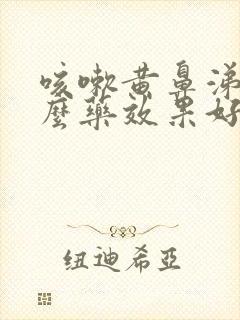 咳嗽黄鼻涕
麼藥效果好
纽迪希亞